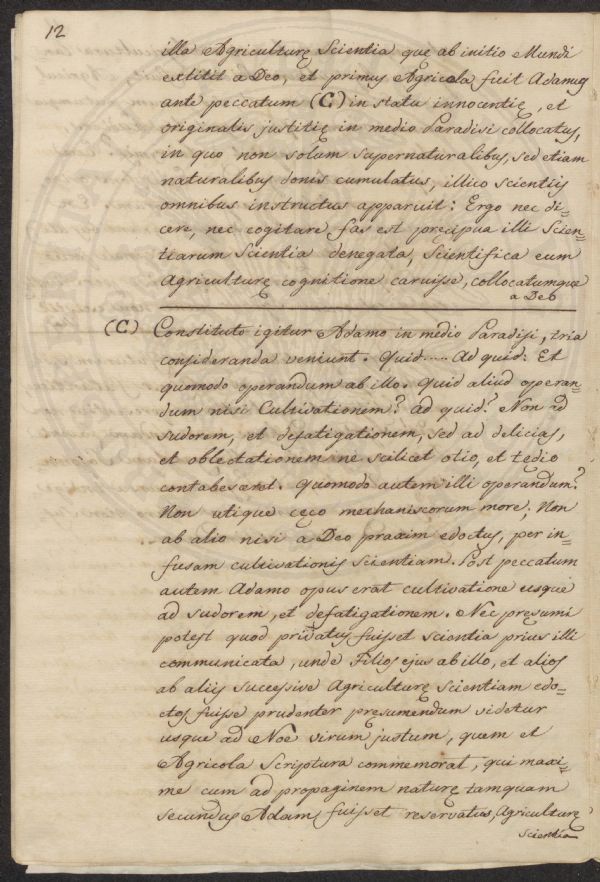 12
illa Agriculturę Scientia quę ab initio Mundi
extitit a Deo, et primus Agricola fuit Adamus
ante peccatum (C) in statu innocentię, et
originalis justitię in medio Paradisi collocatus,
in quo non solum supernaturalibus, sed etiam
naturalibus donis cumulatus, illico scientijs
omnibus instructus apparuit: Ergo nec di=
cere, nec cogitare fas est pręcipua illi Scien=
tiarum Scientia denegata, Scientifica eum
Agriculturę cognitione caruisse, collocatumque
a Deo
(C) Constituto igitur Adamo in medio Paradisi, tria
consideranda veniunt. Quid..... Ad quid: Et
quomodo operandum ab illo. Quid aliud operan=
dum nisi Cultivationem? ad quid? Non ad
sudorem, et defatigationem, sed ad delicias,
et oblectationem ne scilicet otio, et tędio
contabesceret. Quomodo autem illi operandum?
Non utique cęco mechaniscorum more; Non
ab alio nisi a Deo praxim edoctus, per in=
fusam cultivationis scientiam. Post peccatum
autem Adamo opus erat cultivatione usque
ad sudorem, et defatigationem. Nec pręsumi
potest quod privatus fuisset scientia prius illi
communicata, unde Filios ejus ab illo, et alios
ab alijs successive Agriculturę scientiam edo=
ctos fuisse prudenter pręsumendum videtur
usque ad Noe virum justum, quem et
Agricola Scriptura commemorat, qui maxi=
me cum ad propaginem naturę tamquam
secundus Adam fuisset reservatus, Agriculturę
scientia